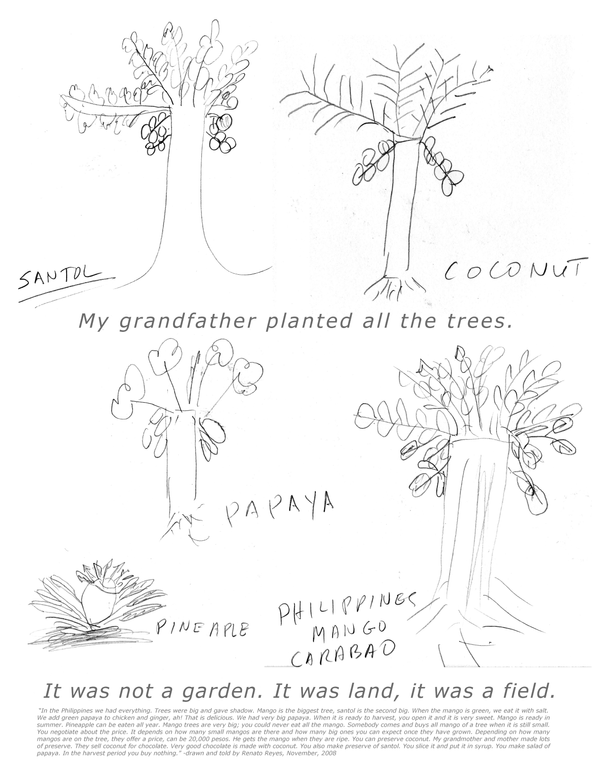 SANTOL
COCONUT
My grandfather planted all the trees.
PAPAYA
PINEAPLE
PHILIPPINES
MANGO
CARABAO
It was not a garden. It was land, it was a field.
"In the Philippines we had everything. Trees were big and gave shadow. Mango is the biggest tree, santol is the second big. When the mango is green, we eat it with salt.
We add green papaya to chicken and ginger, ah! That is delicious. We had very big papaya. When it is ready to harvest, you open it and it is very sweet. Mango is ready in
summer. Pineapple can be eaten all year. Mango trees are very big; you could never eat all the mango. Somebody comes and buys all mango of a tree when it is still small.
You negotiate about the price. It depends on how many small mangos are there and how many big ones you can expect once they have grown. Depending on how many
mangos are on the tree, they offer a price, can be 20,000 pesos. He gets the mango when they are ripe. You can preserve coconut. My grandmother and mother made lots
of preserve. They sell coconut for chocolate. Very good chocolate is made with coconut. You also make preserve of santol. You slice it and put it in syrup. You make salad of
papaya. In the harvest period you buy nothing." -drawn and told by Renato Reyes, November, 2008